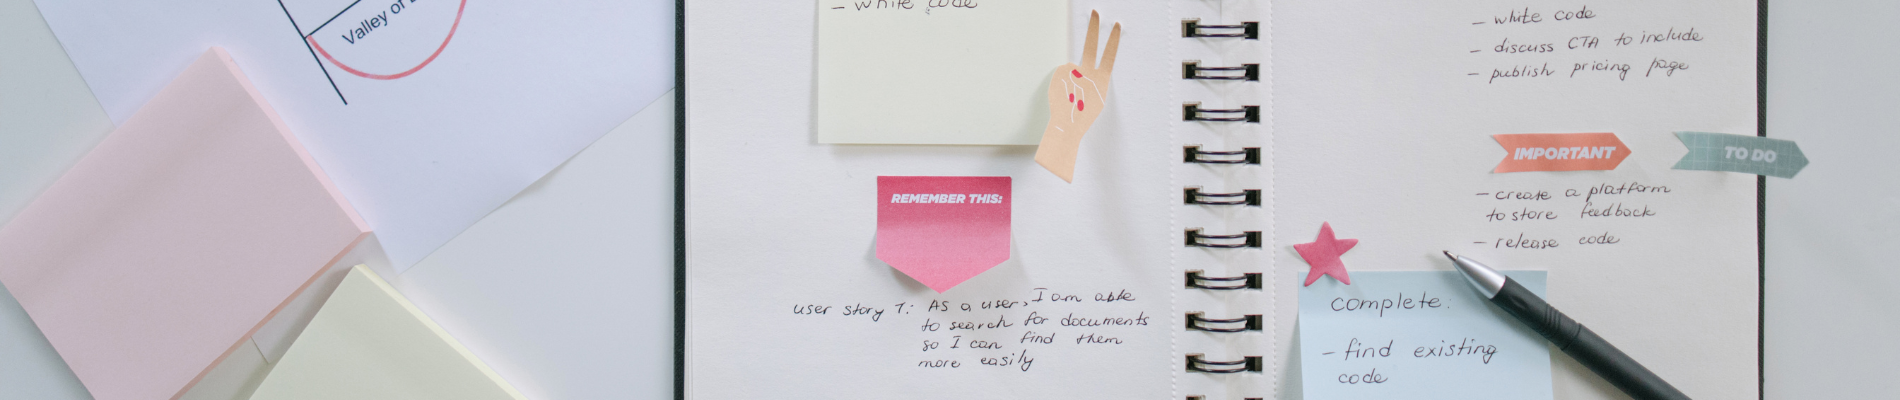 Valley of
- white code
REMEMBER THIS:
user story 1: As a user, I am able
to search for documents
so I can find them
more easily
- white code
- discuss CTA to include
- publish pricing page
IMPORTANT
TO DO
- create a platform
to store feedback
- release code
complete:
- find existing
code